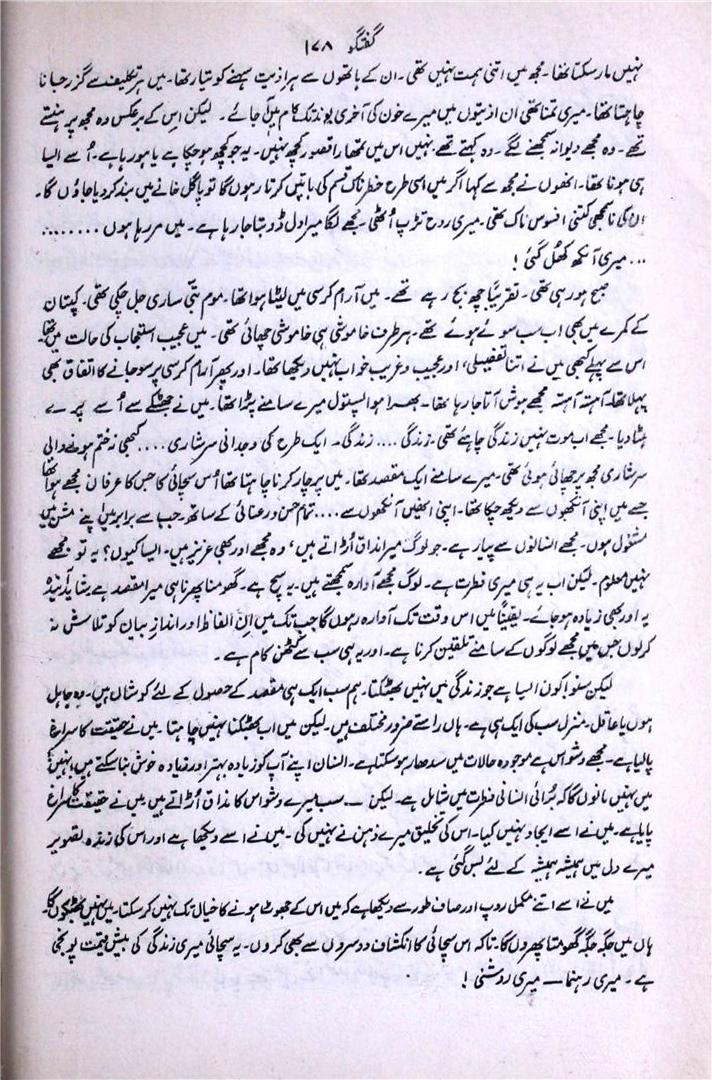 گفتگو ۱۷۸
نہیں مار سکتا تھا۔ مجھ میں اتنی ہمت نہیں تھی۔ ان کے ہاتھوں سے ہر اذیت سہنے کو تیار تھا۔ میں ہر تکلیف سے گزر جانا
چاہتا تھا۔ میری تمنا تھی ان اذیتوں میں میرے خون کی آخری بوند تک کام میں آ جائے۔ لیکن اس کے برعکس وہ مجھ پر ہنستے
تھے۔ وہ مجھے دیوانہ سمجھنے لگے۔ وہ کہتے تھے نہیں اس میں تمھارا قصور کچھ نہیں۔ یہ جو کچھ ہو چکا ہے یا ہو رہا ہے۔ اُسے ایسا
ہی ہونا تھا۔ انھوں نے مجھ سے کہا اگر میں اسی طرح خطرناک قسم کی باتیں کرتا رہوں گا تو پاگل خانے میں بند کر دیا جاؤں گا۔
ان کی نا سمجھی کتنی افسوس ناک تھی۔ میری روح تڑپ اُٹھی۔ مجھے لگا میرا دل ڈوبتا جا رہا ہے۔ میں مر رہا ہوں ........
... میری آنکھ کھُل گئی!
صبح ہو رہی تھی۔ تقریباً چھ بج رہے تھے۔ میں آرام کرسی میں لیٹا ہوا تھا۔ موم بتی ساری جل چکی تھی۔ کپتان
کے کمرے میں بھی اب سب سوئے ہوئے تھے۔ ہر طرف خاموشی ہی خاموشی چھائی تھی۔ میں عجیب استعجاب کی حالت میں تھا۔
اس سے پہلے کبھی میں نے اتنا تفصیلی، اور عجیب و غریب خواب نہیں دیکھا تھا۔ اور پھر آرام کرسی پر سو جانے کا اتفاق بھی
پہلا تھا۔ آہستہ آہستہ مجھے ہوش آتا جا رہا تھا۔ بھرا ہوا پستول میرے سامنے پڑا تھا۔ میں نے جھٹکے سے اُسے پرے
ہٹا دیا۔ مجھے اب موت نہیں زندگی چاہئے تھی۔ زندگی .... زندگی۔ ایک طرح کی وجدانی سرشاری .... کبھی نہ ختم ہونے والی
سرشاری مجھ پر چھائی ہوئی تھی۔ میرے سامنے ایک مقصد تھا۔ میں پرچار کرنا چاہتا تھا اُس سچائی کا جس کا عرفان مجھے ہوا تھا
جسے میں اپنی آنکھوں سے دیکھ چکا تھا۔ اپنی انھیں آنکھوں سے .... تمام حسن و رعنائی کے ساتھ۔ جب سے برابر میں اپنے مشن میں
مشغول ہوں۔ مجھے انسانوں سے پیار ہے۔ جو لوگ میرا مذاق اُڑاتے ہیں، وہ مجھے اور بھی عزیز ہیں۔ ایسا کیوں؟ یہ تو مجھے
نہیں معلوم۔ لیکن اب یہی میری فطرت ہے۔ لوگ مجھے آوارہ سمجھتے ہیں۔ یہ سچ ہے۔ گھومنا پھرنا ہی میرا مقصد ہے شاید آئندہ
یہ اور بھی زیادہ ہو جائے۔ یقیناً میں اس وقت تک آوارہ رہوں گا جب تک میں ان الفاظ اور انداز بیان کو تلاش نہ
کر لوں جس میں مجھے لوگوں کے سامنے تلقین کرنا ہے۔ اور یہی سب سے کٹھن کام ہے۔
لیکن سنو! کون ایسا ہے جو زندگی میں نہیں بھٹکتا۔ ہم سب ایک ہی مقصد کے حصول کے لئے کوشاں ہیں۔ وہ جاہل
ہوں یا عاقل۔ منزل سب کی ایک ہی ہے۔ ہاں راستے ضرور مختلف ہیں۔ لیکن میں اب بھٹکنا نہیں چاہتا۔ میں نے حقیقت کا سراغ
پا لیا ہے۔ مجھے وشواس ہے موجودہ حالات میں سدھار ہو سکتا ہے۔ انسان اپنے آپ کو زیادہ بہتر اور زیادہ خوش بنا سکتے ہیں، نہیں،
میں نہیں مانوں گا کہ بُرائی انسانی فطرت میں شامل ہے۔ لیکن — سب میرے وشواس کا مذاق اُڑاتے ہیں میں نے حقیقت کا سراغ
پا لیا ہے۔ میں نے اسے ایجاد نہیں کیا۔ اس کی تخلیق میرے ذہن نے نہیں کی۔ میں نے اسے دیکھا ہے اور اس کی زندہ تصویر
میرے دل میں ہمیشہ ہمیشہ کے لئے بس گئی ہے۔
میں نے اسے اتنے مکمل روپ اور صاف طور سے دیکھا ہے کہ میں اس کے جھوٹ ہونے کا خیال تک نہیں کر سکتا۔ میں نہیں بھٹکوں گا۔
ہاں میں جگہ جگہ گھومتا پھروں گا۔ تاکہ اس سچائی کا انکشاف دوسروں سے بھی کروں۔ یہ سچائی میری زندگی کی بیش قیمت پونجی
ہے۔ میری رہنما — میری روشنی!